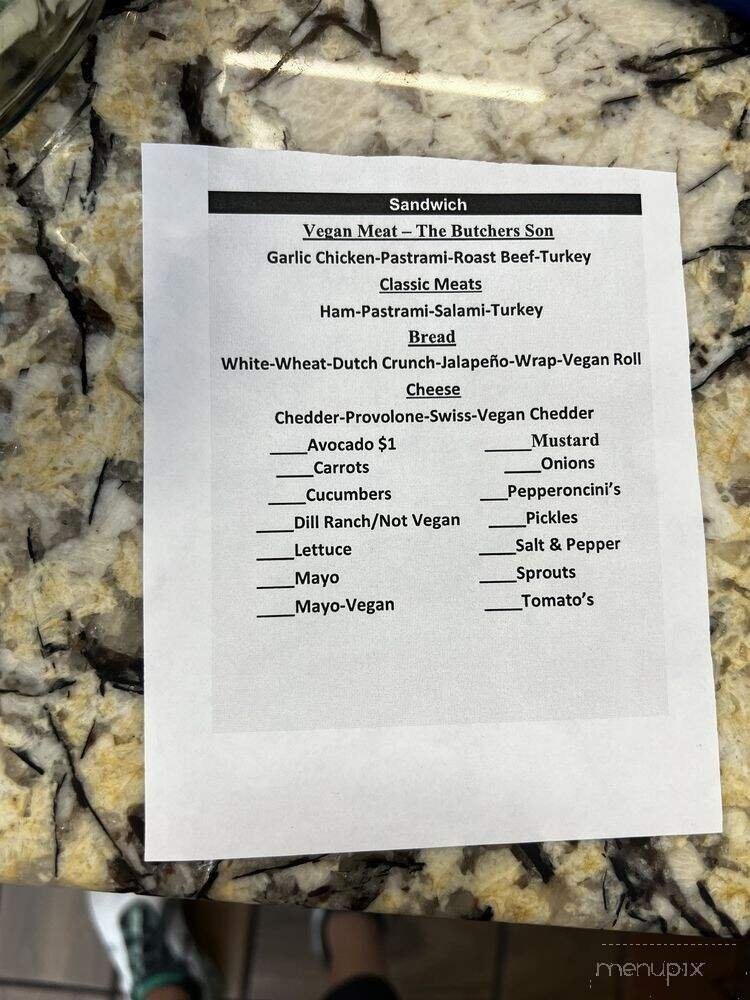 Sandwich
Vegan Meat – The Butchers Son
Garlic Chicken-Pastrami-Roast Beef-Turkey
Classic Meats
Ham-Pastrami-Salami-Turkey
Bread
White-Wheat-Dutch Crunch-Jalapeño-Wrap-Vegan Roll
Cheese
Chedder-Provolone-Swiss-Vegan Chedder
____Avocado $1 ____Mustard
____Carrots ____Onions
____Cucumbers ____Pepperoncini’s
____Dill Ranch/Not Vegan ____Pickles
____Lettuce ____Salt & Pepper
____Mayo ____Sprouts
____Mayo-Vegan ____Tomato’s
menupix